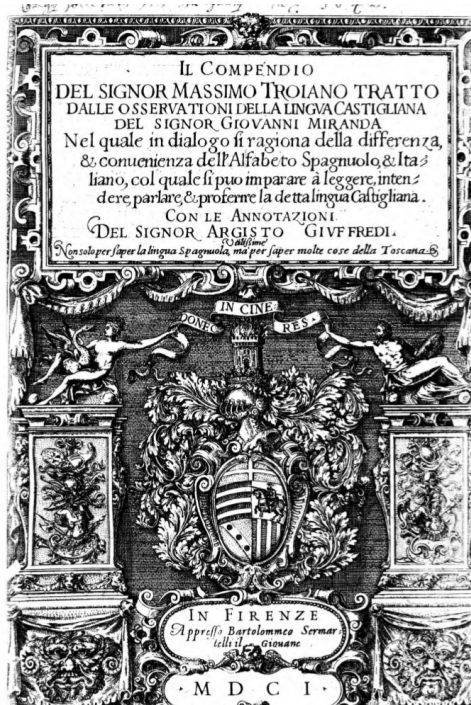 IL COMPENDIO
DEL SIGNOR MASSIMO TROIANO TRATTO
DALLE OSSERVATIONI DELLA LINGVA CASTIGLIANA
DEL SIGNOR GIOVANNI MIRANDA
Nel quale in dialogo si ragiona della differenza,
& conuenienza dell'Alfabeto Spagnuolo, & Ita⸗
liano, col quale si puo imparare à leggere, inten⸗
dere, parlare, & proferire la detta lingua Castigliana.
CON LE ANNOTAZIONI
DEL SIGNOR ARGISTO GIVFFREDI.
Vtilissime
Non solo per saper la lingua Spagnuola, ma per saper molte cose della Toscana.
DONEC IN CINE⸗ RES.
IN FIRENZE
Appresso Bartolommeo Sermar⸗
telli il Giouane
· M D C I ·